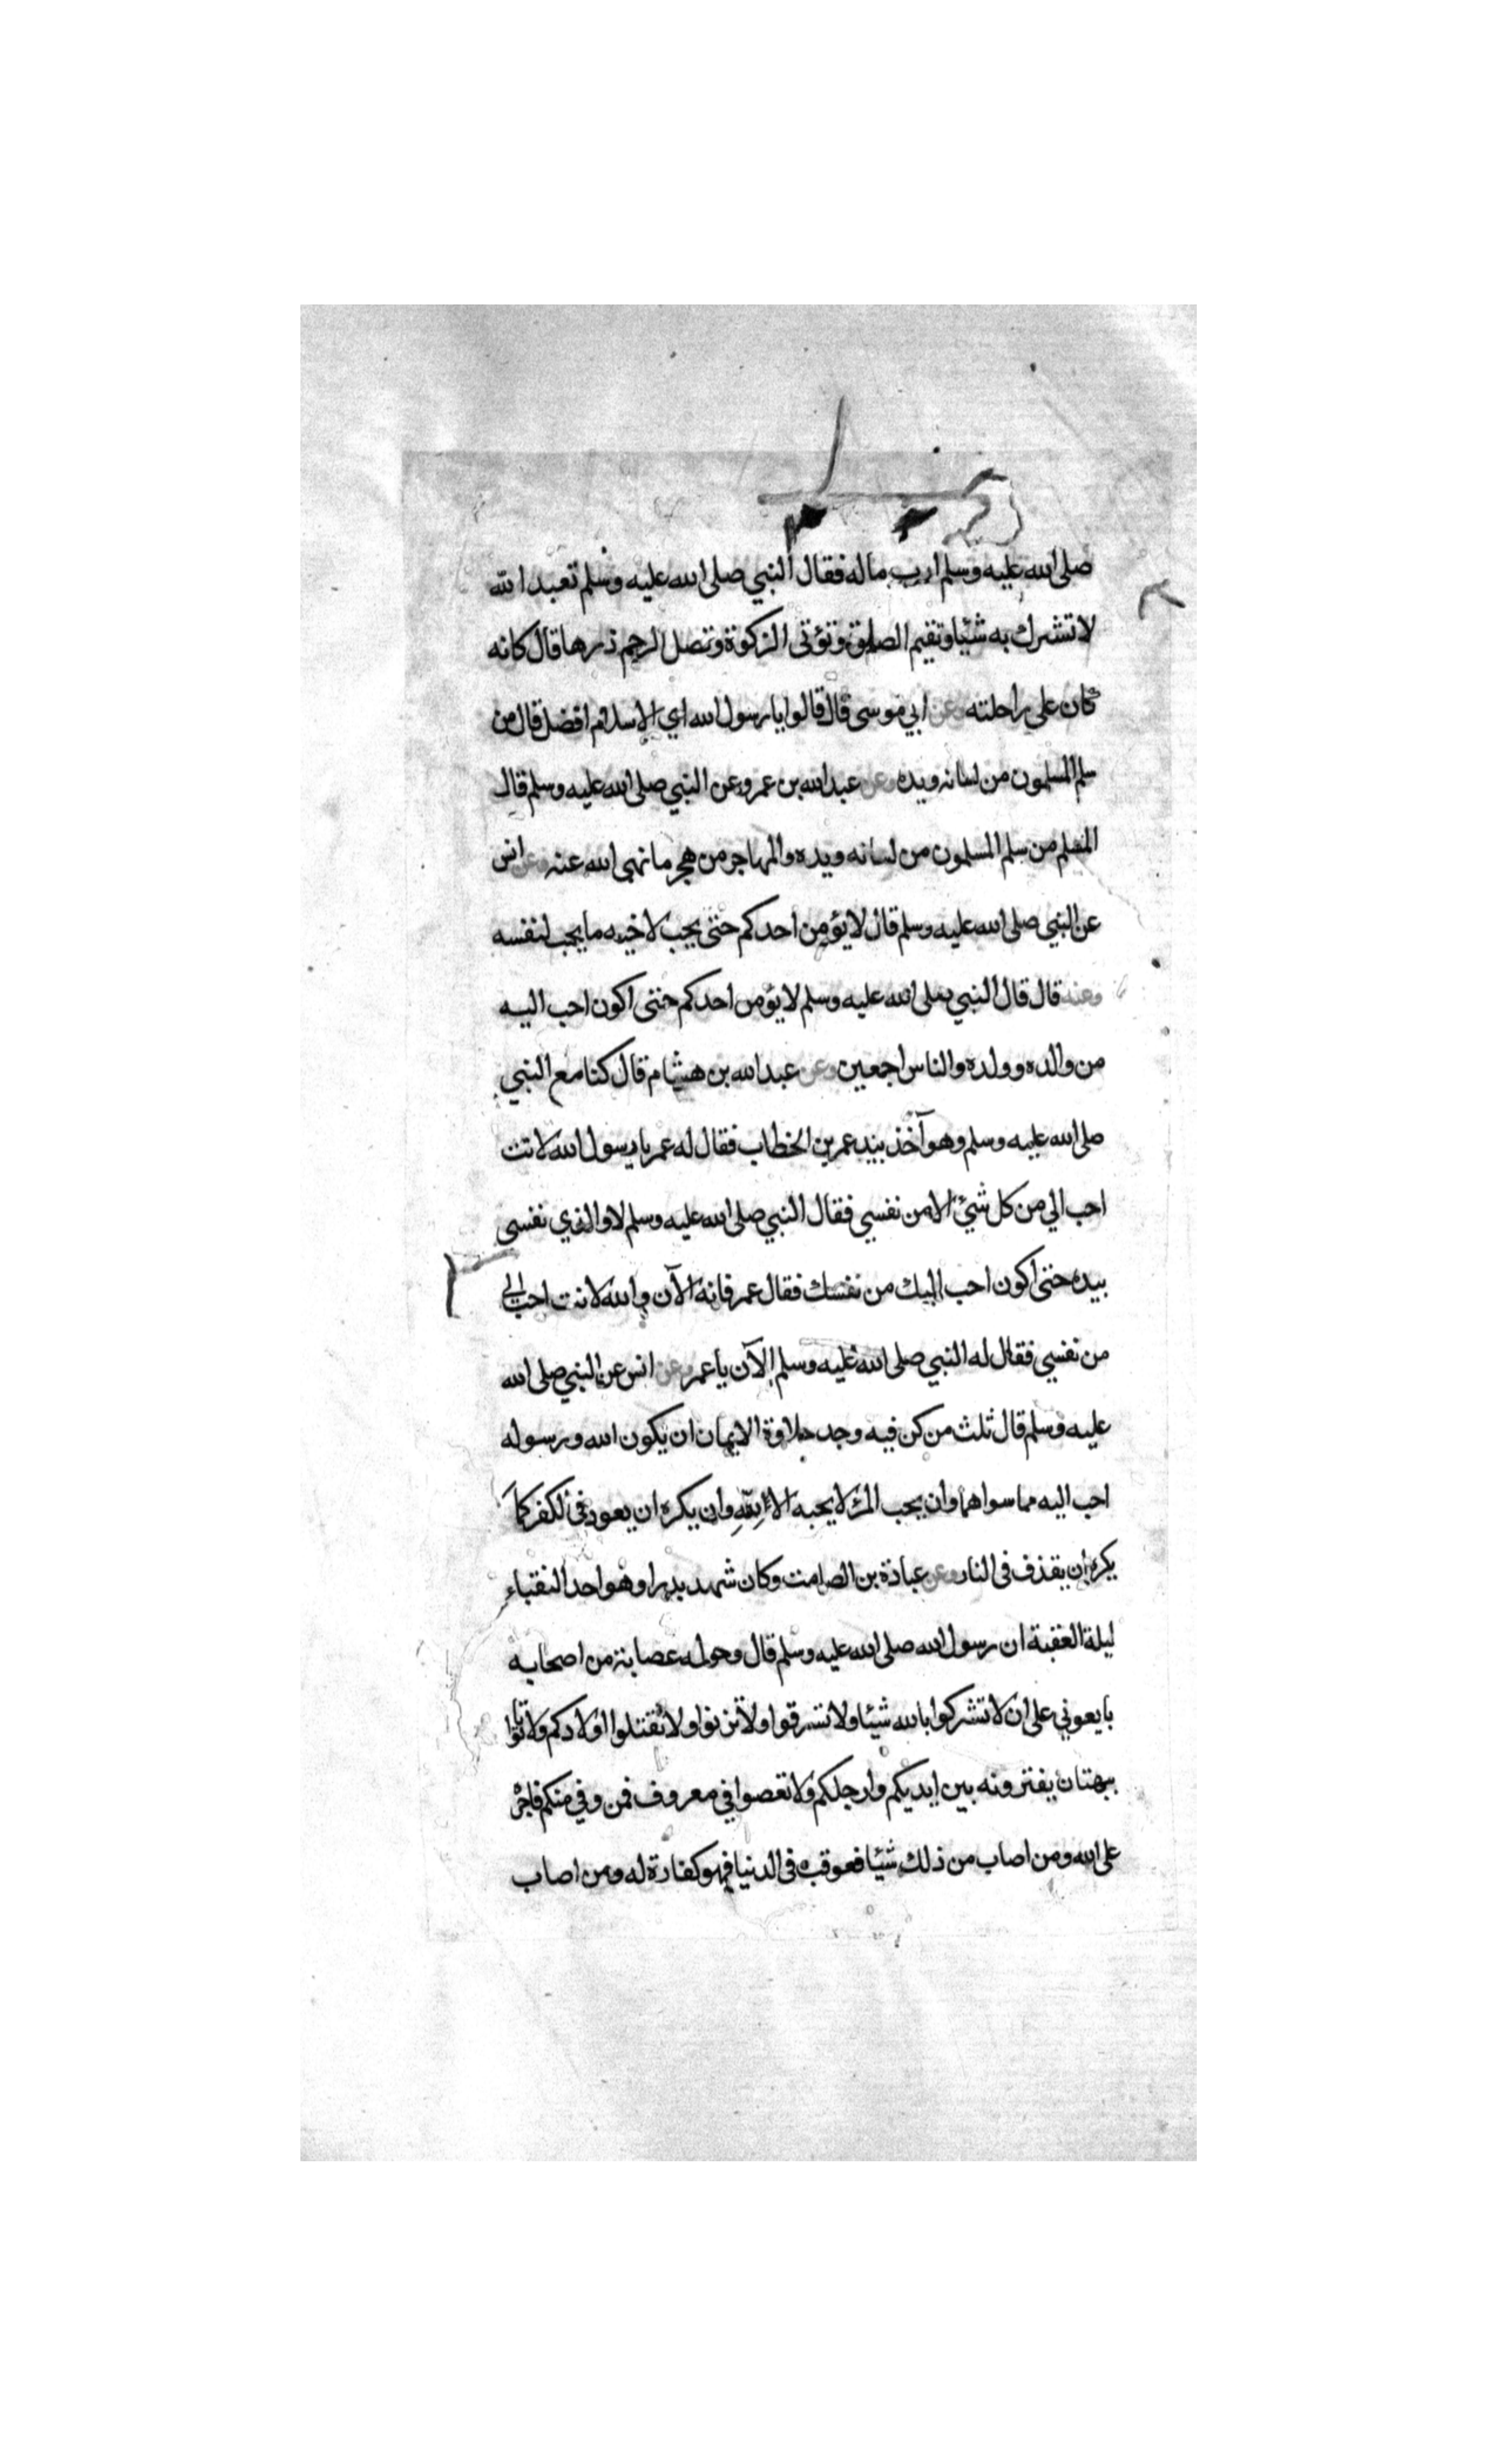 صلى الله عليه وسلم ارب ماله فقال النبي صلى الله عليه وسلم تعبد الله
لا تشرك به شيئا وتقيم الصلوة وتؤتى الزكوة وتصل الرحم ذرها قال كانه
كان على راحلته وعن ابي موسى قال قالوا يا رسول الله اي الاسلام افضل قال من
سلم المسلمون من لسانه ويده وعن عبد الله بن عمرو عن النبي صلى الله عليه وسلم قال
المسلم من سلم المسلمون من لسانه ويده والمهاجر من هجر ما نهى الله عنه وعن انس
عن النبي صلى الله عليه وسلم قال لا يؤمن احدكم حتى يحب لاخيه ما يحب لنفسه
وعنه قال قال النبي صلى الله عليه وسلم لا يؤمن احدكم حتى اكون احب اليه
من والده وولده والناس اجمعين وعن عبد الله بن هشام قال كنا مع النبي
صلى الله عليه وسلم وهو آخذ بيد عمر بن الخطاب فقال له عمر يا رسول الله لانت
احب الي من كل شئ الا من نفسي فقال النبي صلى الله عليه وسلم لا والذي نفسى
بيده حتى اكون احب اليك من نفسك فقال عمر فانه الآن والله لانت احب الي
من نفسي فقال له النبي صلى الله عليه وسلم الآن يا عمر وعن انس عن النبي صلى الله
عليه وسلم قال ثلث من كن فيه وجد حلاوة الايمان ان يكون الله ورسوله
احب اليه مما سواهما وان يحب المرء لا يحبه الا لله وان يكره ان يعود فى الكفر كما
يكره ان يقذف فى النار وعن عبادة بن الصامت وكان شهد بدرا وهو احد النقباء
ليلة العقبة ان رسول الله صلى الله عليه وسلم قال وحوله عصابة من اصحابه
بايعوني على ان لا تشركوا بالله شيئا ولا تسرقوا ولا تزنوا ولا تقتلوا اولادكم ولا تاتوا
ببهتان يفترونه بين ايديكم وارجلكم ولا تعصوا في معروف فمن وفي منكم فاجره
على الله ومن اصاب من ذلك شيئا فعوقب فى الدنيا فهو كفارة له ومن اصاب